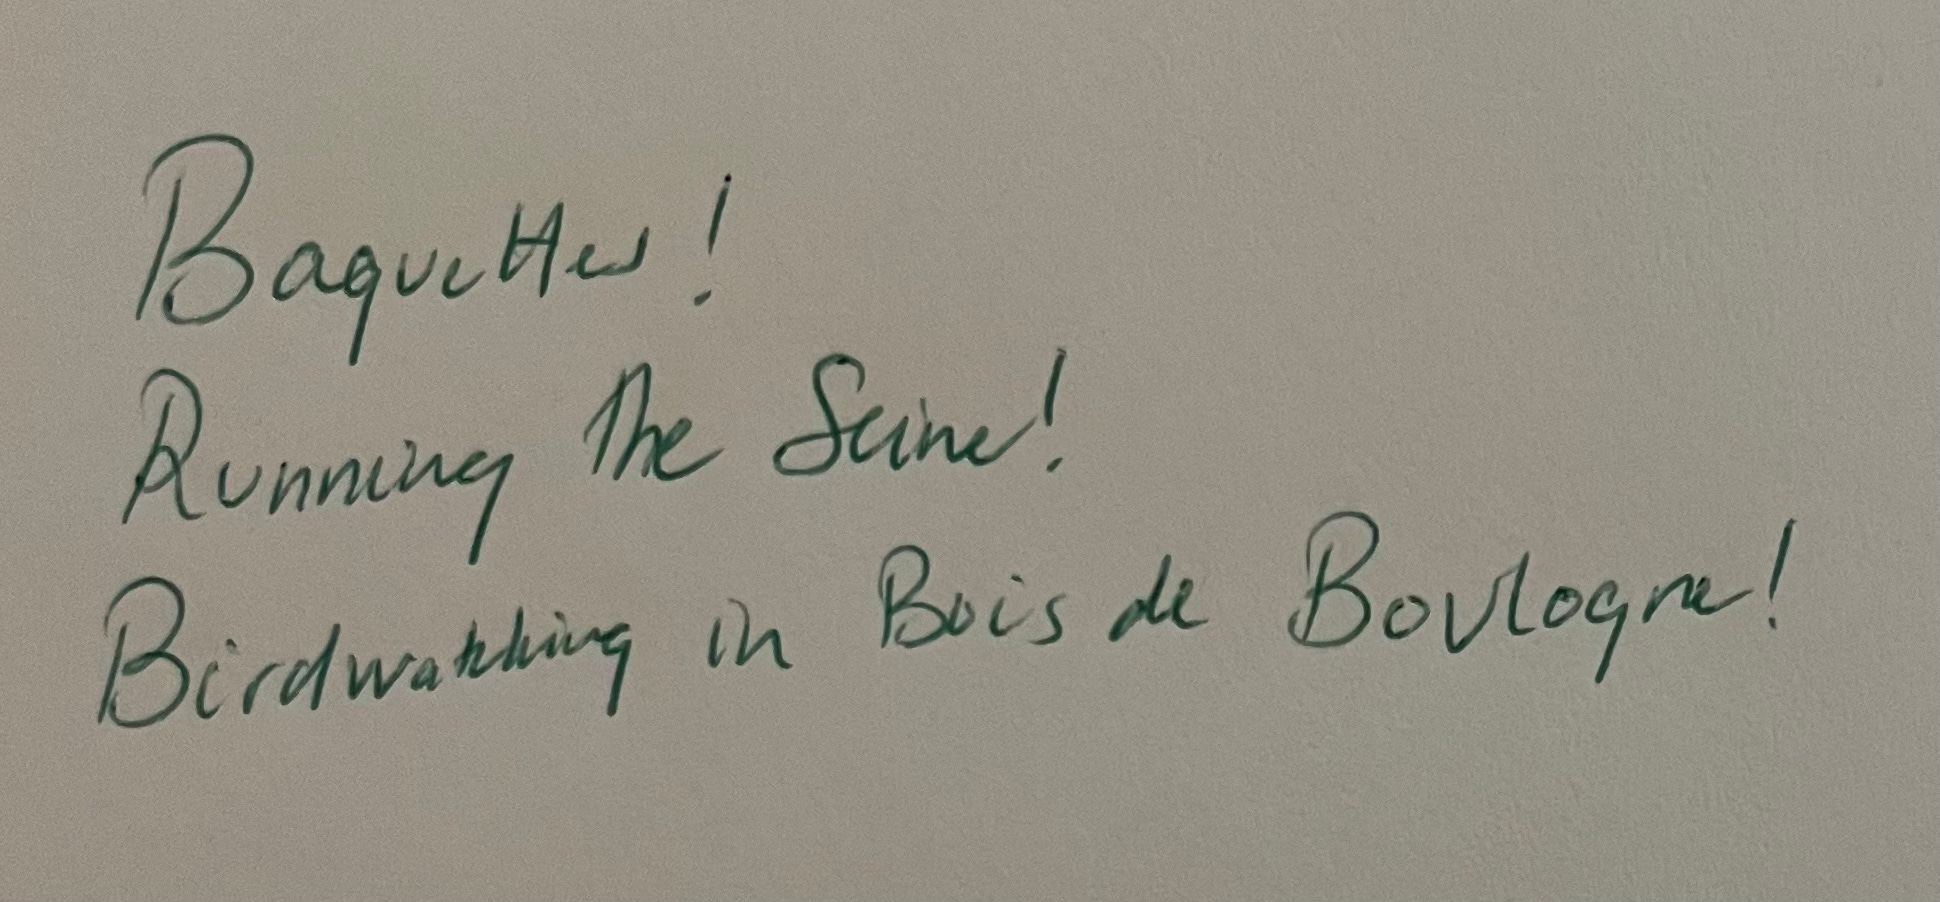 Baguettes!
Running the Seine!
Birdwatching in Bois de Boulogne!